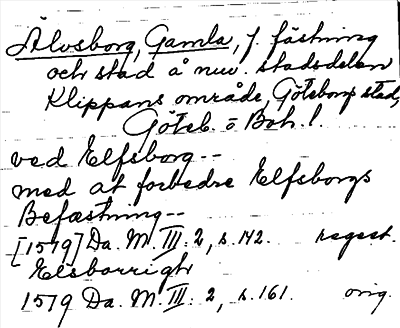 Älvsborg, Gamla, f. fästning
och stad å nuv. stadsdelen
Klippans område, Göteborgs stad,
Göteb. o Boh. l.
ved Elfsborg --
med at forbedre Elfsborgs
Befæstning --
[1579] Da. M. III: 2, s. 142. regest.
Elsborrigh
1579 Da. M. III: 2, s. 161. orig.